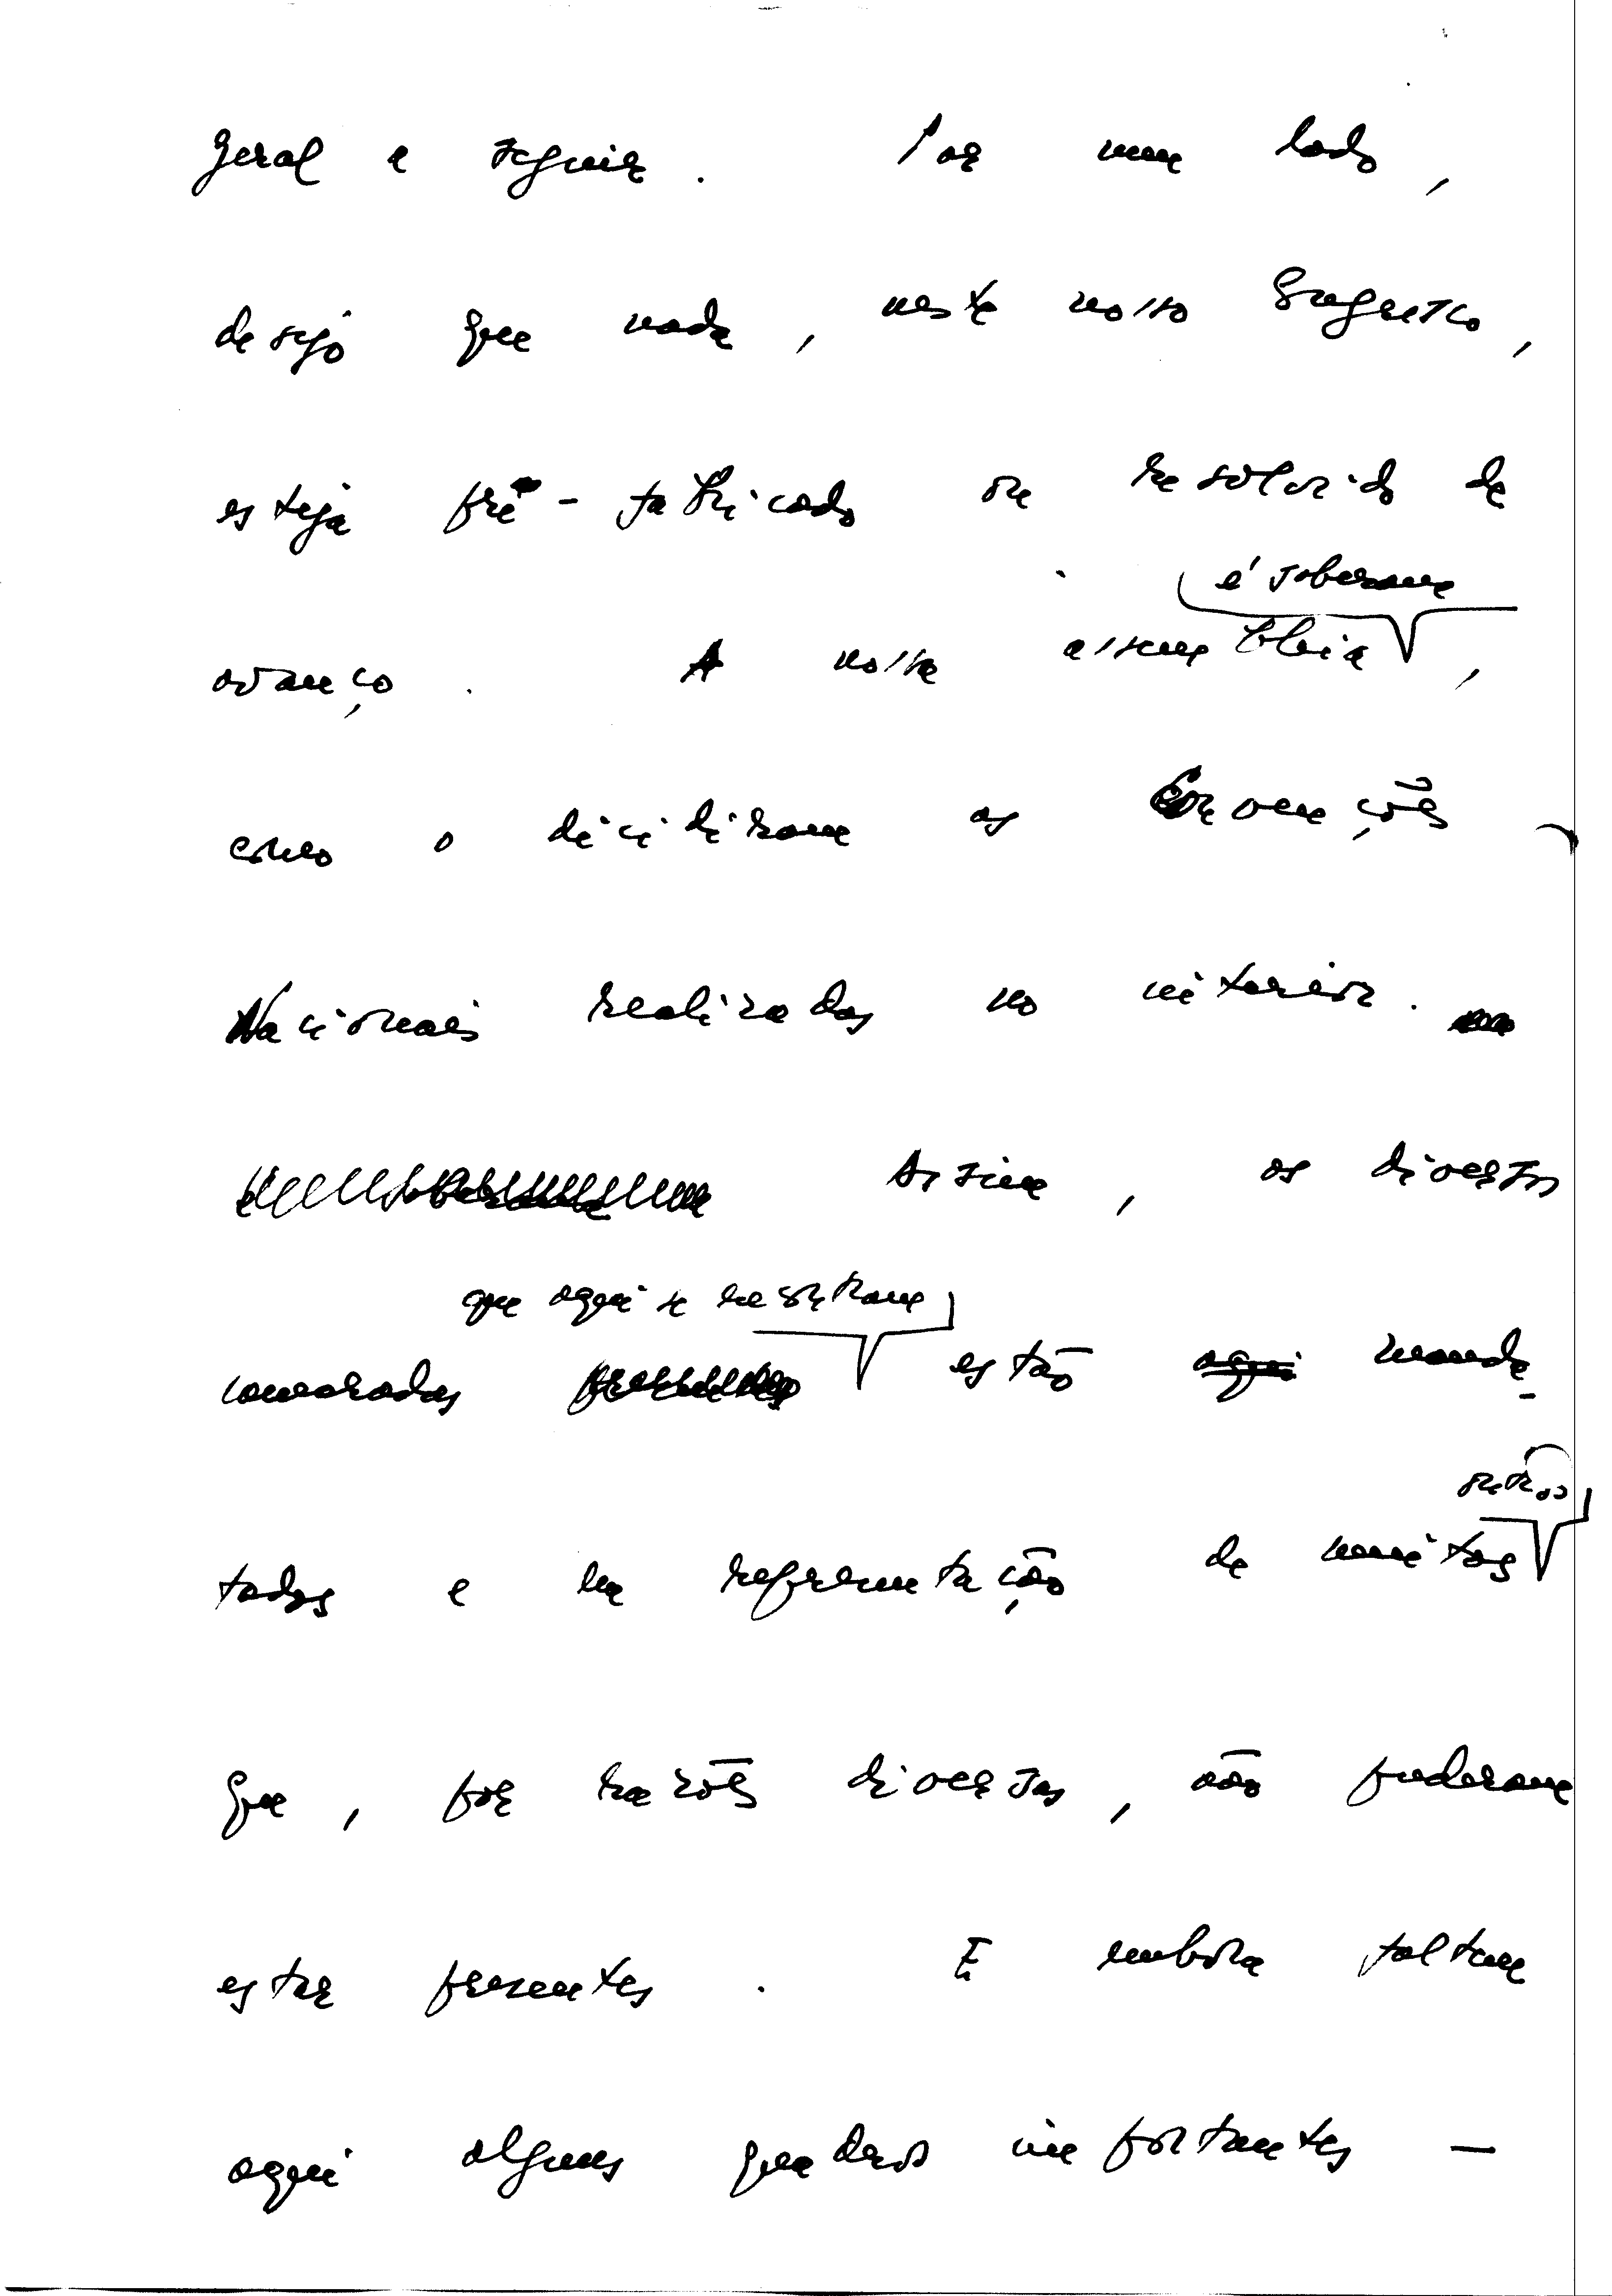 geral a seguir. Por um lado,
desejo que nada, neste nosso Congresso,
esteja pré-fabricado ou resolvido de
é soberana
avanço. A nossa assembleia,
como o decidiram as Convenções
Nacionais realizadas no interior.
Assim, os diversos
que aqui se encontram
camaradas estão aqui manda-
outros
tados e em representação de muitos
que, por razões diversas, não puderam
estar presentes. E embora faltem
aqui alguns quadros importantes —